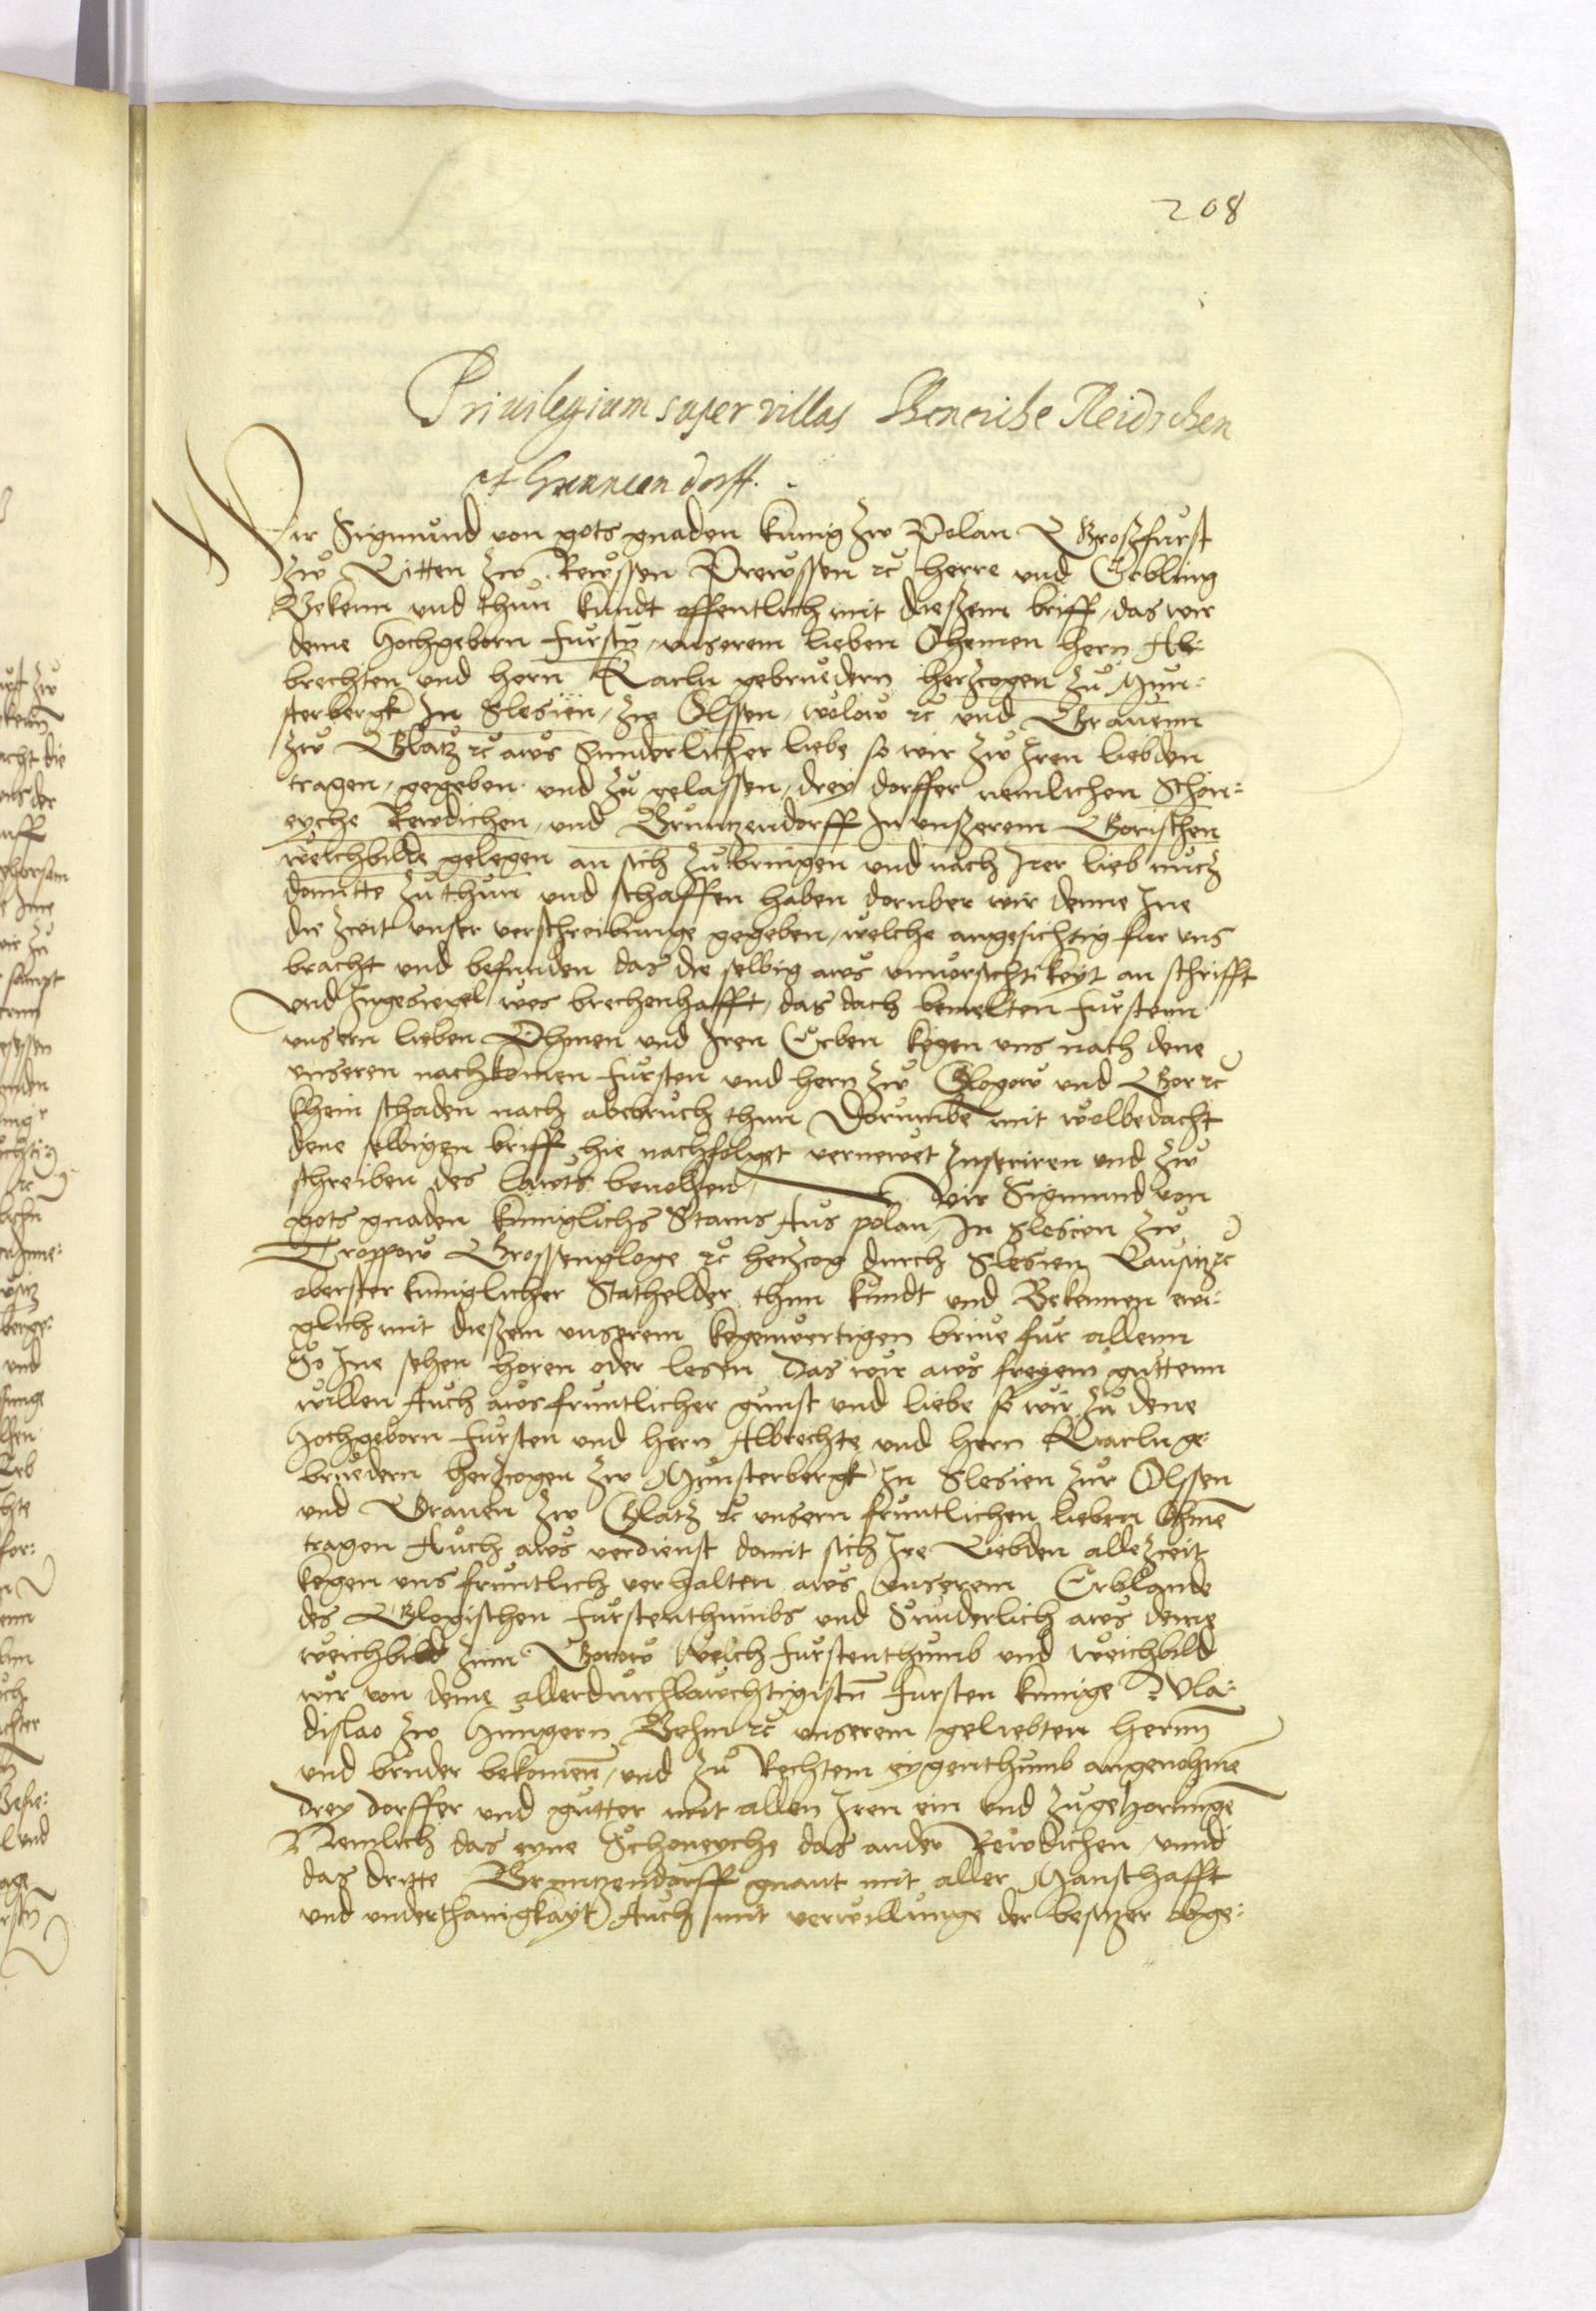 208
Priuilegium super villas Schoneiche Reidichen
et Gruncendorff.
Wir Sigmund von gots gnaden kunig zw Polan Großfurst
zw Litten zw Rewssen Prewssen ꝛc herre und Erbling
Bekenn und thun kundt offentlich mit dießem briff, das wir
deme hochgeborn furstn, unserem lieben Ohemen hern Al:
brechten und hern Karln gebruedern herzcogen zu Mun:
sterbergk In Slesien, zw Olssen, wolow ꝛc und Grauenn
zw Glatz ꝛc aws sunderlicher liebe so wir zw Iren liebden
tragen, gegeben und zu gelassen, drey dorffer nemlichen Schon:
eyche Rewdichen, und Gruntzendorff In unßerem Gorischen
weichbilde gelegen an sich zu bringen und nach Irer lieb nucz
domitte zu thun und schaffen haben doruber wir denne Ine
die zceit unser verschreibunge gegeben, welche angesichtig fur uns
bracht und befunden das die selbig aws unvorsichtikeyt an schrifft
und Ingesiegel wes brechenhafft, das doch bemelten furstenn
unsern lieben Ohmen und Iren Erben kegen uns nach dene
unseren nachkomen fursten und hern zw Glogow und Gor ꝛc
khein schaden nach abebruch thun Dorumbe mit wolbedacht
dene selbigen briff hie nachfolget vernewet Inseriren und zw
schreiben des lawts bevolhen, Wir Sigmund von
gots gnaden kuniglichs Stams Aus polan, In Slesien zw
Troppow Grossengloge ꝛc herzcog durch Slesien Lausitz ꝛc
oberster kuniglicher Stathelder thun kundt und Bekennen ewi:
glich mit dießem unserem kegenwertigen brive fur allenn
So Ine sehen horen oder lesen Das wir aws freyem guttenn
willen Auch aws fruntlicher gunst und liebe so wir zu dene
hochgeborn fursten und hern Albrechte und hern Karln ge
bruedern herzcogen zw Munsterbergk In Slesien zur Olssen
und Grauen zw Glatz ꝛc unsern fruntlichen lieben Ohmē
tragen Auch aws verdienst domit sich Ire Liebden allezceit
kegen uns fruntlich verhalten aws unserem Erblande
des Glogischen furstenthumbs und Sunderlich aws deme
weichbild zum Gorow Welch furstenthumb und weichbild
wir von deme allerdurchlawchtigistn fursten kunige Vla:
dislao zw Hungern Behm ꝛc unserem geliebten hernn
und bruder bekomenn, und zu Rechtem eygenthumb angenohmē
Drey dorffer und gutter mit allen Iren ein und zugehorungē
Nemlich das eyne Schoneyche das ander Rewdichen unnd
das dritte Gruntzendorff gnant mit aller Manschafft
und underthanigkayt Auch mit verwillunge der besitzer abge: